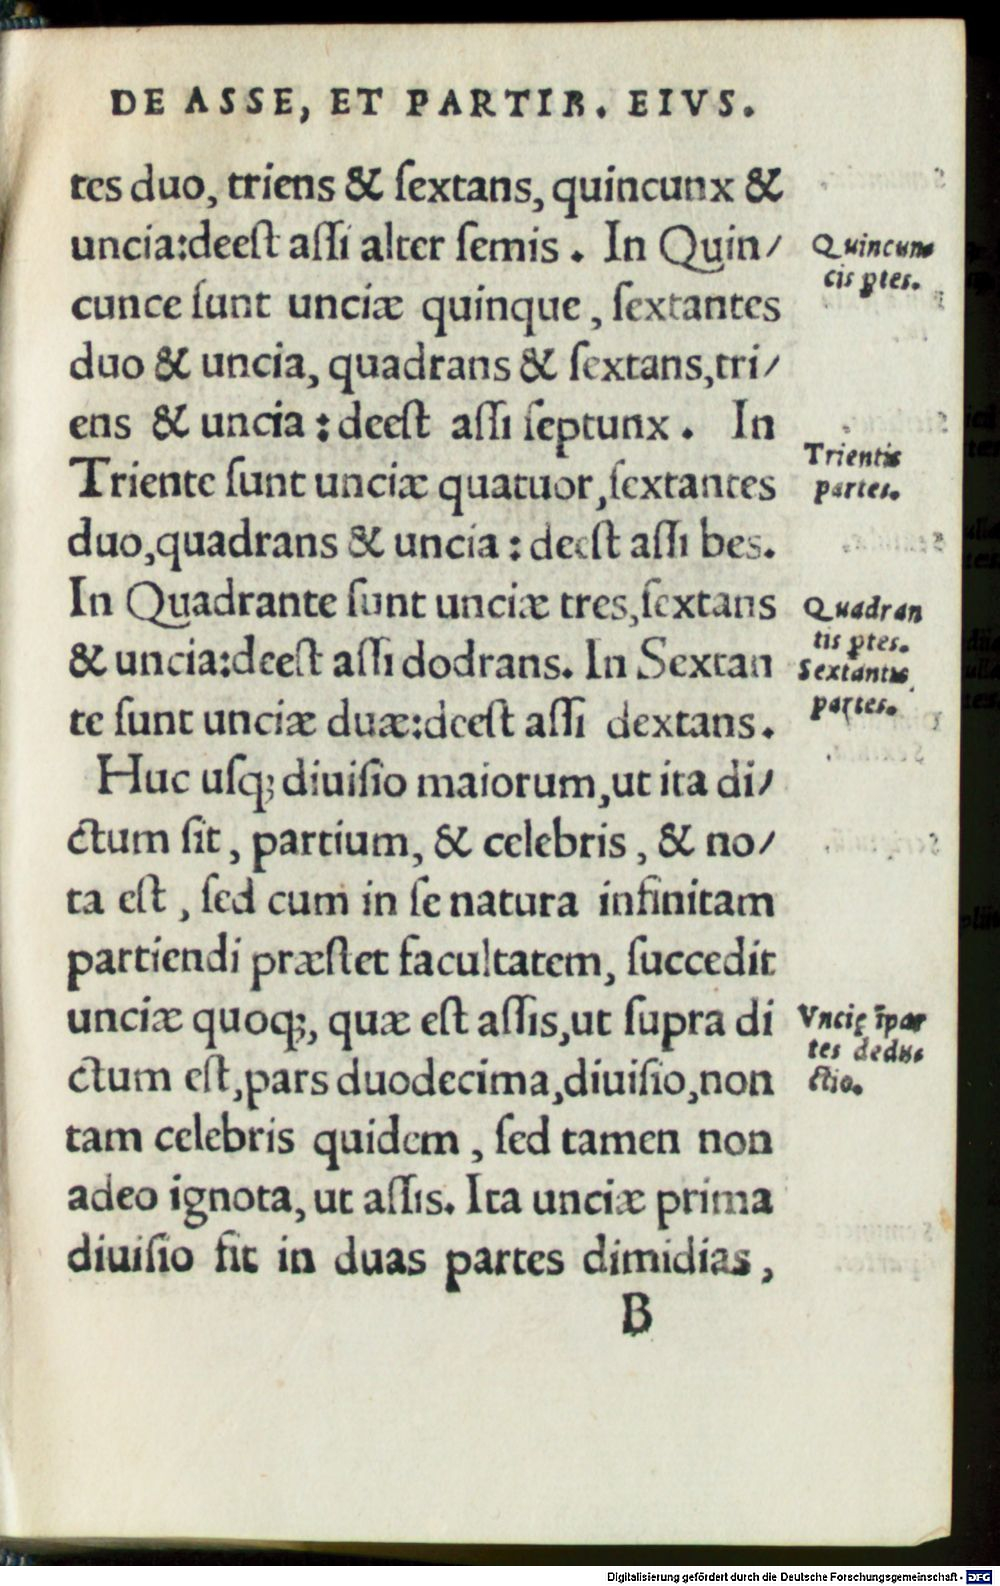 DE ASSE, ET PARTIB. EIVS.
tes duo, triens & ſextans, quincunx &
uncia:deeſt aſſi alter ſemis. In Quin/
cunce ſunt unciæ quinque, ſextantes
duo & uncia, quadrans & ſextans,tri/
ens & uncia: deeſt aſſi ſeptunx. In
Triente ſunt unciæ quatuor,ſextantes
duo,quadrans & uncia: deeſt aſſi bes.
In Quadrante ſunt unciæ tres,ſextans
& uncia:deeſt aſſi dodrans. In Sextan
te ſunt unciæ duæ:deeſt aſſi dextans.
Huc uſqꝫ diuiſio maiorum,ut ita di/
ctum ſit, partium, & celebris, & no/
ta eſt, ſed cum in ſe natura infinitam
partiendi præſtet facultatem, ſuccedit
unciæ quoqꝫ, quæ eſt aſſis,ut ſupra di
ctum eſt,pars duodecima,diuiſio,non
tam celebris quidem, ſed tamen non
adeo ignota, ut aſſis. Ita unciæ prima
diuiſio fit in duas partes dimidias,
B
Quincun
cis ꝑtes.
Trientis
partes.
Quadran
tis ꝑtes.
Sextantis
partes.
Vncię ī par
tes dedu
ctio.
Digitalisierung gefördert durch die Deutsche Forschungsgemeinschaft - DFG